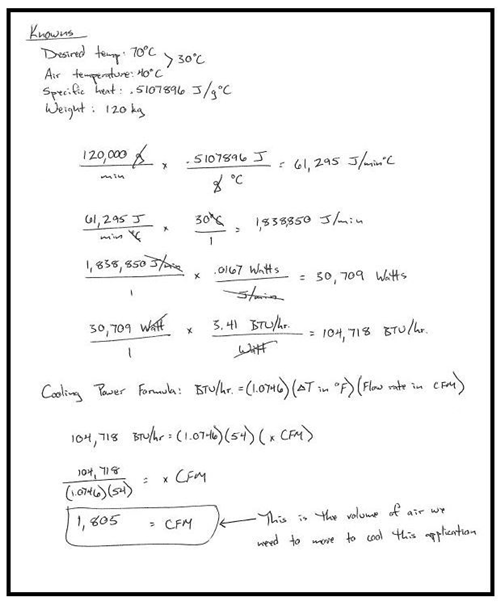 Knowns
Desired temp: 70°C > 30°C
Air temperature: 40°C
Specific heat: .5107896 J/g°C
Weight: 120 kg
120,000 g / min × .5107896 J / g °C = 61,295 J/min°C
61,295 J / min °C × 30°C / 1 = 1,838,850 J/min
1,838,850 J/min / 1 × .0167 Watts / J/min = 30,709 Watts
30,709 Watt / 1 × 3.41 BTU/hr. / Watt = 104,718 BTU/hr.
Cooling Power Formula: BTU/hr. = (1.0746)(ΔT in °F)(Flow rate in CFM)
104,718 BTU/hr = (1.0746)(54)(x CFM)
104,718 / (1.0746)(54) = x CFM
1,805 = CFM ← This is the volume of air we
need to move to cool this application